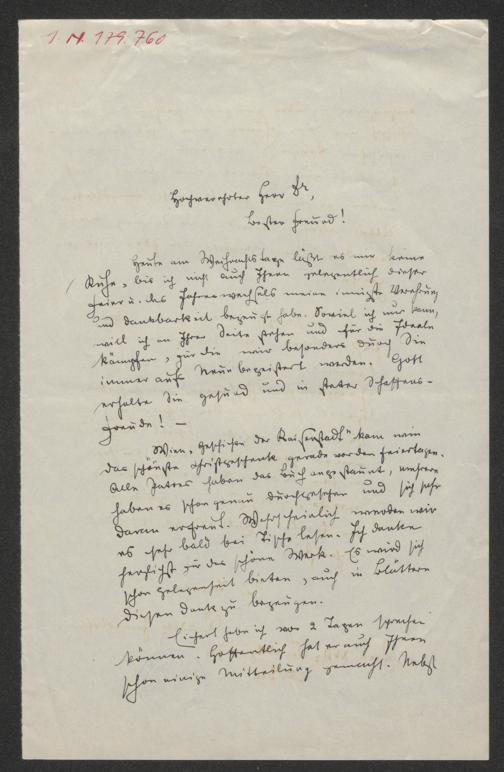 I. N. 179.760
Hochverehrter Herr Dr,
Bester Freund!
Heute am Weihnachtstage läßt es mir keine
Ruhe, bis ich nicht auch Ihnen gelegentlich dieser
Feier u. des Jahreswechsels meine innigste Verehrung
und Dankbarkeit bezeigt habe. Soviel ich nur kann,
will ich an Ihrer Seite stehen und für die Ideale
kämpfen, für die wir besonders durch Sie
immer aufs Neue begeistert werden. Gott
erhalte Sie gesund und in steter Schaffens-
freude! —
"Wien, Geschichte der Kaiserstadt" kam wie
das schönste Christgeschenk gerade vor den Feiertagen.
Alle Patres haben das Buch angestaunt, mehrere
haben es schon genau durchgesehen und sich sehr
daran erfreut. Wahrscheinlich werden wir
es sehr bald bei Tische lesen. Ich danke
herzlichst für das schöne Werk. Es wird sich
schon Gelegenheit bieten, auch in Blättern
diesen Dank zu bezeugen.
Eichert habe ich vor 2 Tagen sprechen
können. Hoffentlich hat er auch Ihnen
schon einige Mitteilung gemacht. Nebst